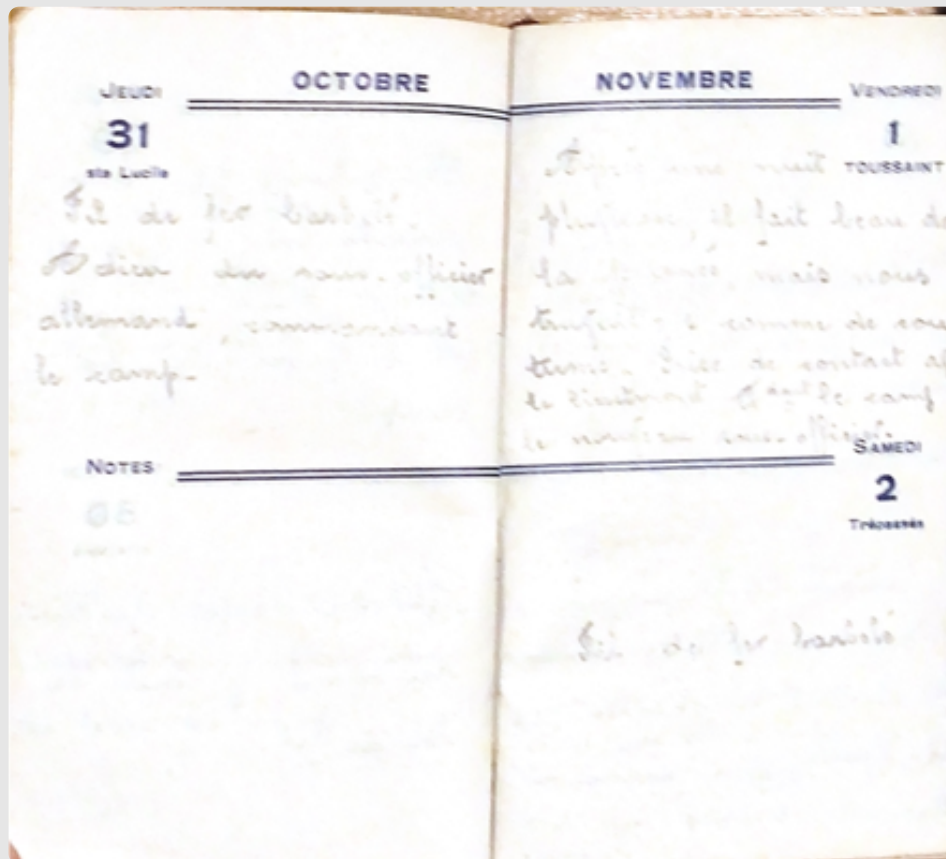 JEUDI
OCTOBRE
31
ste Lucile
Fil de fer barbelé.
Adieu du sous-officier
allemand, commandant
le camp.
NOTES
NOVEMBRE
VENDREDI
1
TOUSSAINT
Après une nuit
il fait beau
la mais nous
comme de cou
tume. Prise de contact
le lieutenant le camp
le nouveau sous-officier.
SAMEDI
2
Trépassés
Fil de fer barbelé